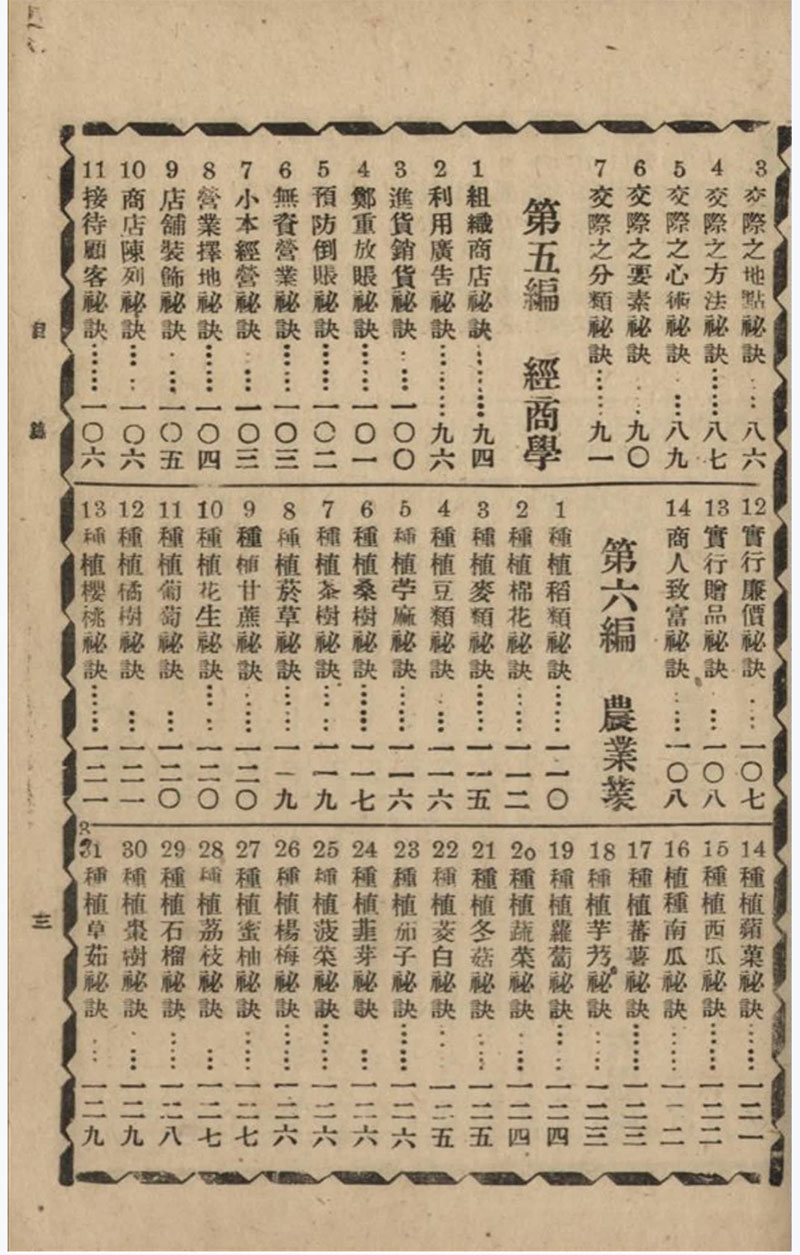 3 交際之地點祕訣……八六
4 交際之方法祕訣……八七
5 交際之心術祕訣……八九
6 交際之要素祕訣……九〇
7 交際之分類祕訣……九一
第五編 經商學
1 組織商店祕訣……九四
2 利用廣告祕訣……九六
3 進貨銷貨祕訣……一〇〇
4 鄭重放賬祕訣……一〇一
5 預防倒賬祕訣……一〇二
6 無資營業祕訣……一〇三
7 小本經營祕訣……一〇三
8 營業擇地祕訣……一〇四
9 店舖裝飾祕訣……一〇五
10 商店陳列祕訣……一〇六
11 接待顧客祕訣……一〇六
12 實行廉價祕訣……一〇七
13 實行贈品祕訣……一〇八
14 商人致富祕訣……一〇八
第六編 農業叢
1 種植稻類祕訣……一一〇
2 種植棉花祕訣……一一二
3 種植麥類祕訣……一一五
4 種植豆類祕訣……一一六
5 種植苧麻祕訣……一一六
6 種植桑樹祕訣……一一七
7 種植茶樹祕訣……一一九
8 種植菸草祕訣……一一九
9 種植甘蔗祕訣……一二〇
10 種植花生祕訣……一二〇
11 種植葡萄祕訣……一二〇
12 種植橘樹祕訣……一二一
13 種植櫻桃祕訣……一二一
14 種植蘋菓祕訣……一二一
15 種植西瓜祕訣……一二二
16 植種南瓜祕訣……一二二
17 種植蕃薯祕訣……一二三
18 種植芋艿祕訣……一二三
19 種植蘿蔔祕訣……一二四
20 種植蔬菜祕訣……一二四
21 種植冬菇祕訣……一二五
22 種植茭白祕訣……一二五
23 種植茄子祕訣……一二六
24 種植韮芽祕訣……一二六
25 種植菠菜祕訣……一二六
26 種植楊梅祕訣……一二六
27 種植蜜柚祕訣……一二七
28 種植荔枝祕訣……一二七
29 種植石榴祕訣……一二八
30 種植棗樹祕訣……一二九
31 種植草茹祕訣……一二九
目
三